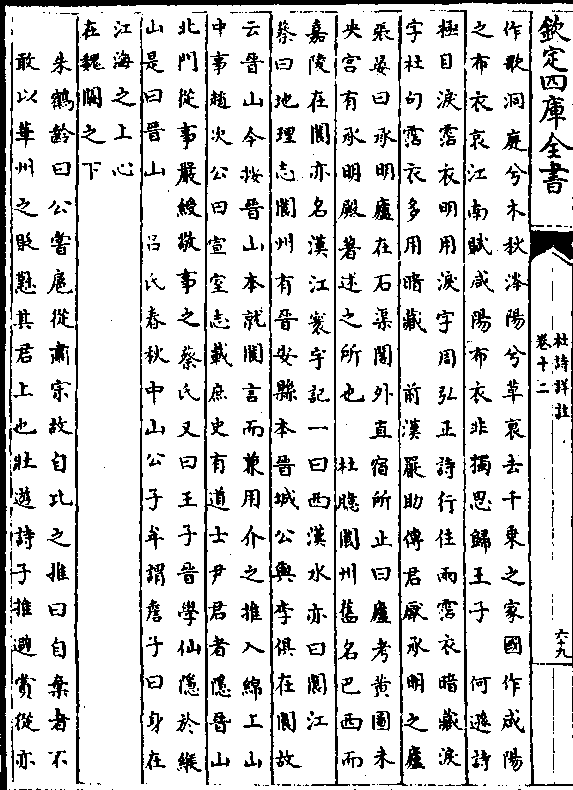 欽定四庫全書
杜詩詳註
卷十二
六十九
作歌洞庭兮木秋涔陽兮草衰去千乗之家國作咸陽
之布衣哀江南賦咸陽布衣非獨思歸王子　何遜詩
極目淚霑衣明用淚字周弘正詩行住兩霑衣暗藏淚
字杜句霑衣多用暗藏　前漢嚴助傳君厭承明之廬
張晏曰承明廬在石渠閣外直宿所止曰廬考黄圖未
央宫有承明殿著述之所也　杜臆閬州舊名巴西而
嘉陵在閬亦名漢江寰宇記一曰西漢水亦曰閬江
蔡曰地理志閬州有晉安縣本晉城公與李俱在閬故
云晉山今按晉山本就閬言而兼用介之推入綿上山
中事趙次公曰宣室志載庶史有道士尹君者隱晉山
北門從事嚴綬敬事之蔡氏又曰王子晉學仙隱於緱
山是曰晉山　吕氏春秋中山公子牟謂詹子曰身在
江海之上心
在魏闕之下
朱鶴齡曰公嘗扈從肅宗故自比之推曰自棄者不
敢以華州之貶懟其君上也壯遊詩子推避賞從亦